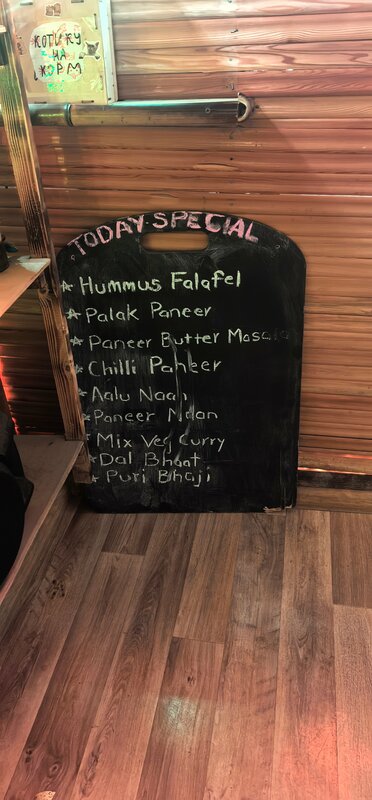 КОТИКУ
НА
КОРМ
TODAY SPECIAL
Hummus Falafel
Palak Paneer
Paneer Butter Masala
Chilli Paneer
Aalu Naan
Paneer Naan
Mix Veg Curry
Dal Bhaat
Puri Bhaji